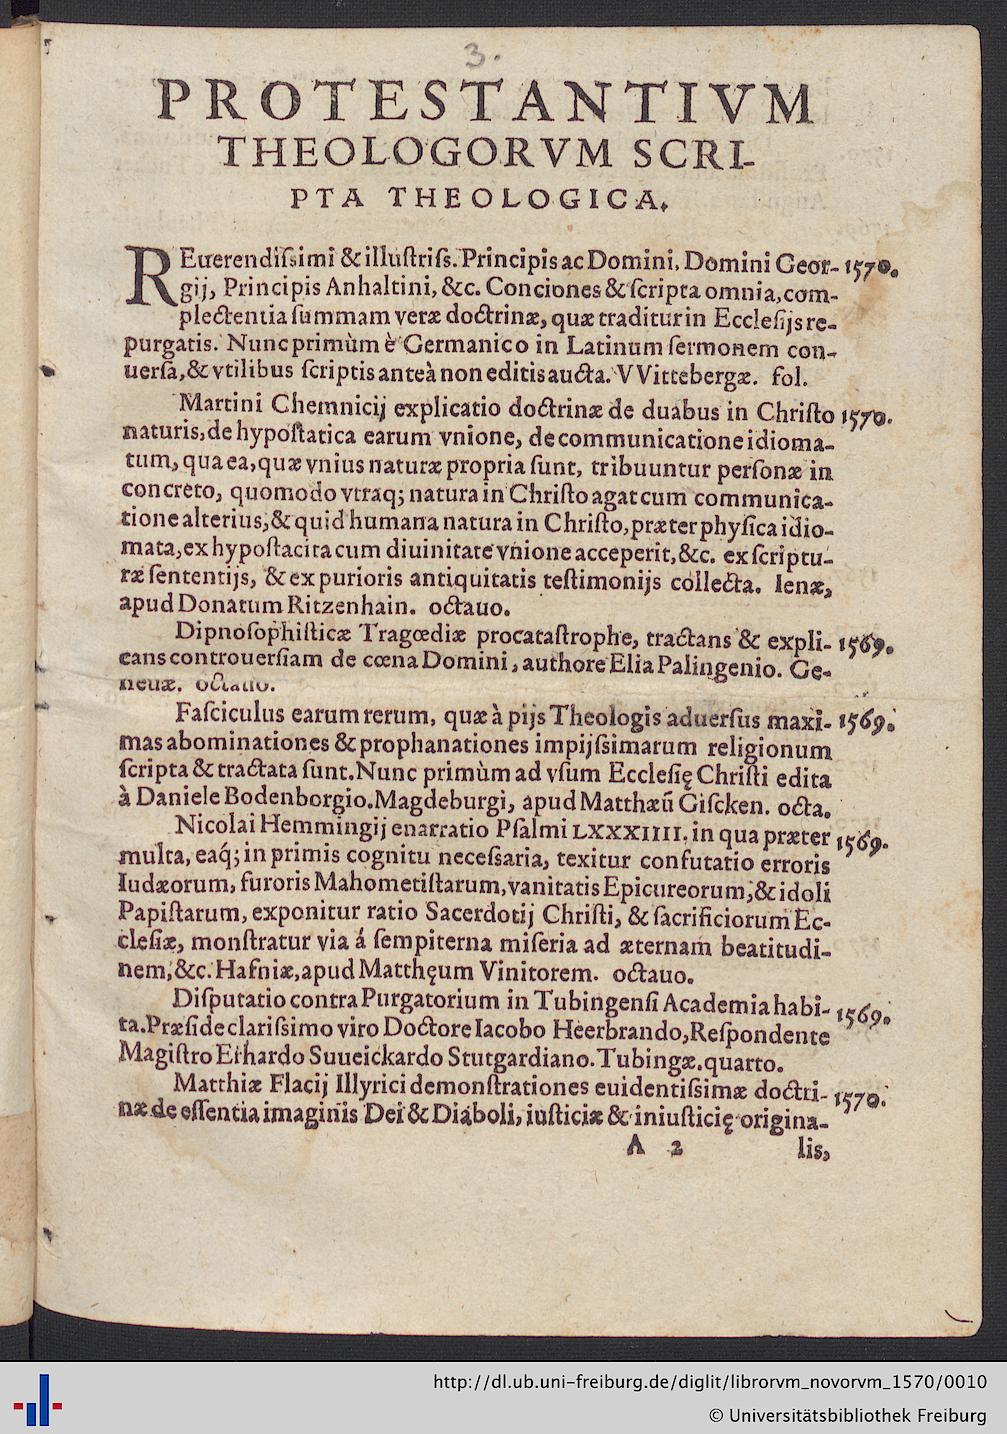 3.
PROTESTANTIVM
THEOLOGORVM SCRI-
PTA THEOLOGICA.
REuerendiſsimi & illuſtriſs. Principis ac Domini, Domini Geor- 1570.
gij, Principis Anhaltini, &c. Conciones & ſcripta omnia, com-
plectentia ſummam veræ doctrinæ, quæ traditur in Eccleſijs re-
purgatis. Nunc primùm è Germanico in Latinum ſermonem con-
uerſa, & vtilibus ſcriptis anteà non editis aucta. VVittebergæ. fol.
Martini Chemnicij explicatio doctrinæ de duabus in Chriſto 1570.
naturis, de hypoſtatica earum vnione, de communicatione idioma-
tum, qua ea, quæ vnius naturæ propria ſunt, tribuuntur perſonæ in
concreto, quomodo vtraq; natura in Chriſto agat cum communica-
tione alterius, & quid humana natura in Chriſto, præter phyſica idio-
mata, ex hypoſtacita cum diuinitate vnione acceperit, &c. ex ſcriptu-
ræ ſententijs, & ex purioris antiquitatis teſtimonijs collecta. Ienæ,
apud Donatum Ritzenhain. octauo.
Dipnoſophiſticæ Tragœdiæ procataſtrophe, tractans & expli- 1569.
cans controuerſiam de cœna Domini, authore Elia Palingenio. Ge-
neuæ. octauo.
Faſciculus earum rerum, quæ à pijs Theologis aduerſus maxi- 1569.
mas abominationes & prophanationes impijſsimarum religionum
ſcripta & tractata ſunt. Nunc primùm ad vſum Eccleſię Chriſti edita
à Daniele Bodenborgio. Magdeburgi, apud Matthæū Giſcken. octa.
Nicolai Hemmingij enarratio Pſalmi LXXXIIII. in qua præter 1569.
multa, eáq; in primis cognitu neceſsaria, texitur confutatio erroris
Iudæorum, furoris Mahometiſtarum, vanitatis Epicureorum, & idoli
Papiſtarum, exponitur ratio Sacerdotij Chriſti, & ſacrificiorum Ec-
cleſiæ, monſtratur via á ſempiterna miſeria ad æternam beatitudi-
nem, &c. Hafniæ, apud Matthęum Vinitorem. octauo.
Diſputatio contra Purgatorium in Tubingenſi Academia habi- 1569.
ta. Præſide clariſsimo viro Doctore Iacobo Heerbrando, Reſpondente
Magiſtro Erhardo Suueickardo Stutgardiano. Tubingæ. quarto.
Matthiæ Flacij Illyrici demonſtrationes euidentiſsimæ doctri- 1570.
næ de eſſentia imaginis Dei & Diaboli, iuſticiæ & iniuſticię origina-
A 2 lis,
http://dl.ub.uni-freiburg.de/diglit/librorvm_novorvm_1570/0010
© Universitätsbibliothek Freiburg